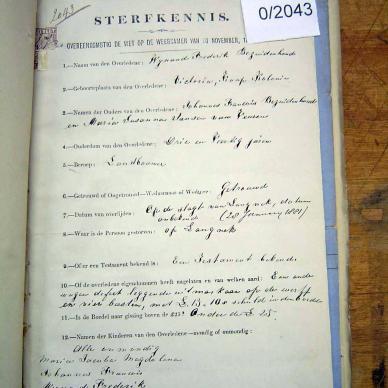 2043
0/2043
STERFKENNIS.
OVEREENKOMSTIG DE WET OP DE WEESKAMER VAN NOVEMBER,
1.—Naam van den Overledene: Wynand Frederik Bezuidenhoud
2.—Geboorteplaats van den Overledene: Victoria, Kaap Kolonie
3.—Namen der Ouders van den Overledene: Johannes Francois Bezuidenhoud
en Maria Susanna Jansen van Vuuren
4.—Ouderdom van den Overledene: Drie en Veertig jaren
5.—Beroep: Landbouwer
6.—Getrouwd of Ongetrouwd—Weduwnaar of Weduwe: Getrouwd
7.—Datum van overlijden: Op de slagt van Langnek, datum
onbekend (28 January 1881)
8.—Waar is de Persoon gestorven: op Langnek
9.—Of er een Testament bekend is: Een Testament bekend
10.—Of de overledene eigendommen heeft nagelaten en van welken aard: Een oude
wagen defect liggende
en vier beesten, met £15-10 schuld in den boedel
11.—Is de Boedel naar gissing boven de £15? Onder de £15
12.—Namen der Kinderen van den Overledene—mondig of onmondig:
Alle onmondig
Maria Jacoba Magdalena
Johannes Francois
Frederik